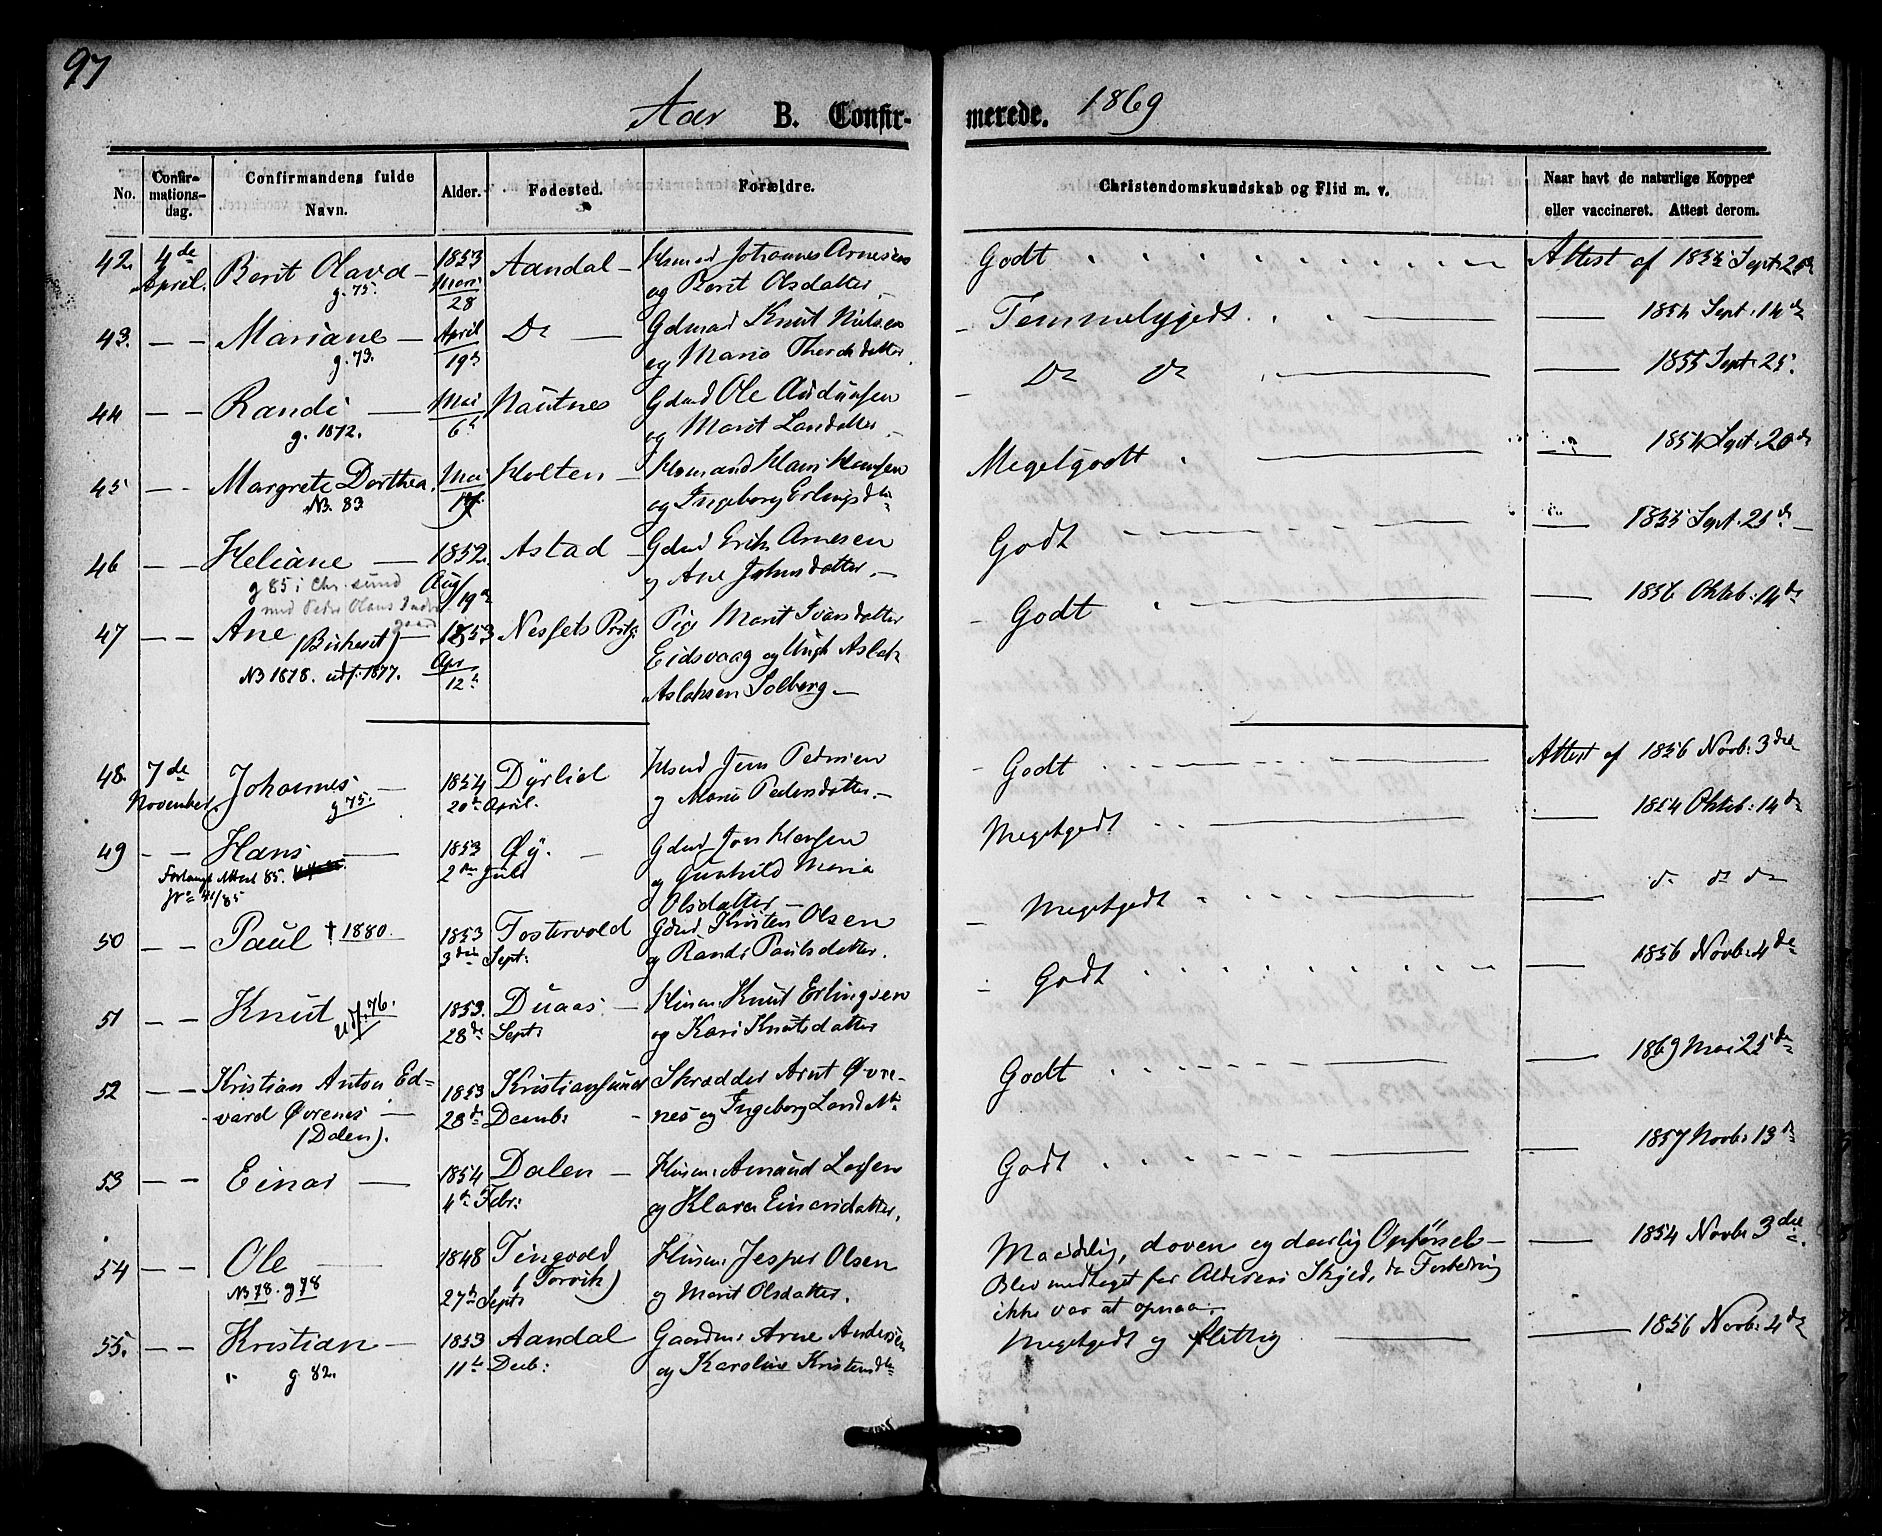 97
Aar B. Confirmerede. 1869
No. Confirmationsdag. Confirmandens fulde Navn. Alder. Fødested. Forældre. Christendomskundskab og Flid m. v. Naar havt de naturlige Kopper eller vaccineret. Attest derom.
42. 4de April. Berit Olava 1853 28 Aandal Johannes Arnesen Godt Attest af Sept: 25de
g. 75.
og Berit Olsdatter
43. Mariane April 19de Do Gdmd Knut Nielsen Temmeliggodt. 1854 Sept: 14de
g. 73.
og Maria
44 Randi Mai 6te Nautnes Gdmd Ole Audunsen Do do 1855 Sept: 25
g. 1872.
og Marit
45 Margrete Dorthea. Mai Holten Hans Hansen Megetgodt 1854 Sept 20de
NB. 83
og Ingeborg Erlingsdtr
46 Heliane 1852. Aug 19de Astad Gdmd Erik Arnesen Godt 1855 Sept. 25de
g 85 i Chr.sund
med Peder Olaus
og Ane Johnsdatter
47 Ane (Birkeset) 1853 Apr 12te Nessets Prstg Pige Marit Ivarsdatter Godt 1856 Oktob: 14de
NB 1878. udf: 1877.
Eidsvaag og Ungk Aslak
Aslaksen Solberg
48. 7de November. Johannes 1854 20de April. Dyrliel Jens Pedersen Godt Attest af 1856 Novb: 3die
g 75.
og Maria Pedersdatter
49 Hans 1853 2den Juli Øy. Gdmd Jon Hansen Megetgodt 1854 Oktob: 14de
Forlangt Attest 85.
Jr 41/85
og Gunhild Maria
Olsdatter
50 Paul † 1880. 1853 3die Sept: Fostervold Gdmd Kristen Olsen Megetgodt do do do
og Randi Paulsdatter.
51 Knut udf: 76. 1853. 28de Sept: Duaas Husm: Knut Erlingsen Godt 1856 Novb: 4de
og Kari Knutsdatter
52 Kristian Anton Ed- 1853 28de Decemb: Kristiansund Skrædder Arnt Øvre- Godt 1869 Mai 25de
vard Øvrenes nes og Ingeborg
(Dalen).
53 Einar 1854 4de Febr: Dalen Husm: Amund Larsen Godt 1857 Novb: 13de
og Klara Einarsdatter,
54 Ole 1848 27de Sept: Tingvold (Torvik) Husm: Jesper Olsen Maadelig, doven og daarlig Opførsel 1854 Novb: 3die
NB 78. g 78
og Marit Olsdatter. Blev medtaget for Alderens Skyld, da Forbedring
ikke var at opnaa.
55. Kristian 1853 11te Decb: Aandal Gaardm: Arne Andersen Megetgodt og flittig 1856 Novb: 4de
g 82.
og Karoline Kristensdtr